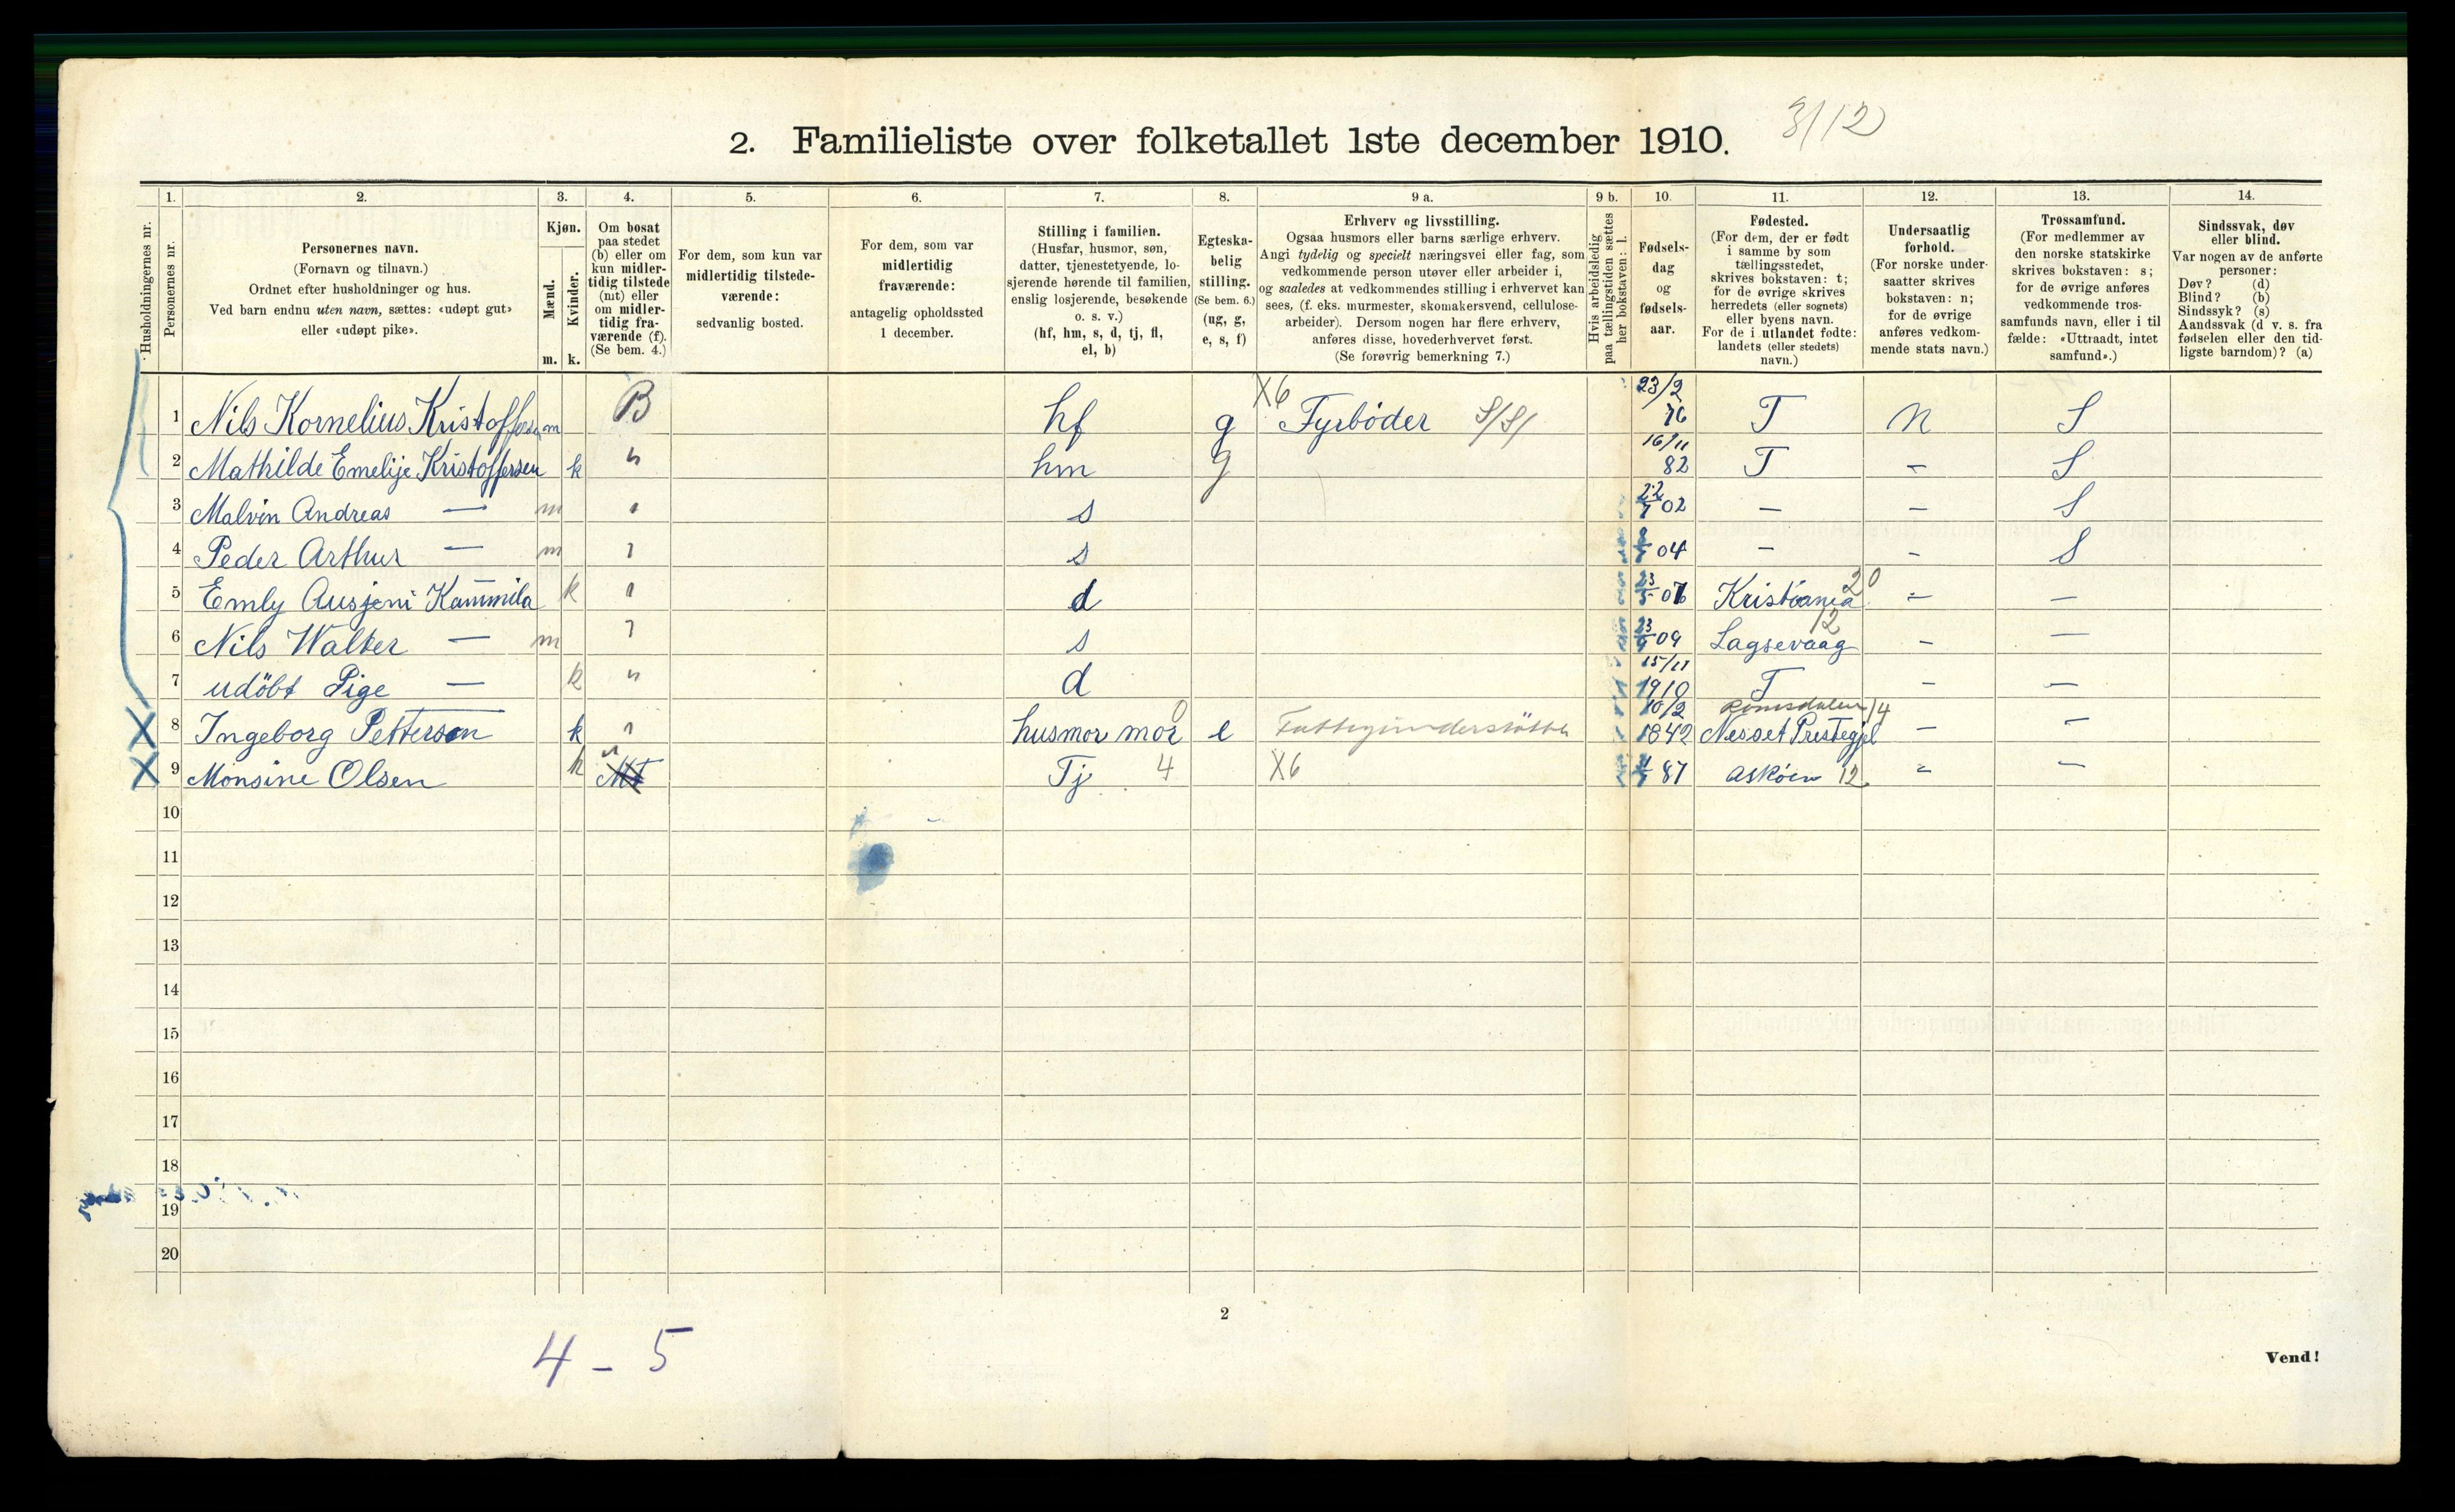 3/12
2. Familieliste over folketallet 1ste december 1910.
1. 2. 3. 4. 5. 6. 7. 8. 9 a. 9 b. 10. 11. 12. 13. 14.
Husholdningernes nr.
Personernes nr.
Personernes navn.
(Fornavn og tilnavn.)
Ordnet efter husholdninger og hus.
Ved barn endnu uten navn, sættes: «udøpt gut»
eller «udøpt pike».
Kjøn.
Mænd.
Kvinder.
m. k.
Om bosat
paa stedet
(b) eller om
kun midler-
tidig tilstede
(mt) eller
om midler-
tidig fra-
værende (f).
(Se bem. 4.)
For dem, som kun var
midlertidig tilstede-
værende:
sedvanlig bosted.
For dem, som var
midlertidig
fraværende:
antagelig opholdssted
1 december.
Stilling i familien.
(Husfar, husmor, søn,
datter, tjenestetyende, lo-
sjerende hørende til familien,
enslig losjerende, besøkende
o. s. v.)
(hf, hm, s, d, tj, fl,
el, b)
Egteska-
belig
stilling.
(Se bem. 6.)
(ug, g,
e, s, f)
Erhverv og livsstilling.
Ogsaa husmors eller barns særlige erhverv.
Angi tydelig og specielt næringsvei eller fag, som
vedkommende person utøver eller arbeider i,
og saaledes at vedkommendes stilling i erhvervet kan
sees, (f. eks. murmester, skomakersvend, cellulose-
arbeider). Dersom nogen har flere erhverv,
anføres disse, hovederhvervet først.
(Se forøvrig bemerkning 7.)
Hvis arbeidsledig
paa tællingstiden sættes
her bokstaven: l.
Fødsels-
dag
og
fødsels-
aar.
Fødested.
(For dem, der er født
i samme by som
tællingsstedet,
skrives bokstaven: t;
for de øvrige skrives
herredets (eller sognets)
eller byens navn.
For de i utlandet fødte:
landets (eller stedets)
navn.)
Undersaatlig
forhold.
(For norske under-
saatter skrives
bokstaven: n;
for de øvrige
anføres vedkom-
mende stats navn.)
Trossamfund.
(For medlemmer av
den norske statskirke
skrives bokstaven: s;
for de øvrige anføres
vedkommende tros-
samfunds navn, eller i til
fælde: «Uttraadt, intet
samfund».)
Sindssvak, døv
eller blind.
Var nogen av de anførte
personer:
Døv? (d)
Blind? (b)
Sindssyk? (s)
Aandssvak (d v. s. fra
fødselen eller den tid-
ligste barndom)? (a)
1 Nils Kornelius Kristoffersen m B hf g X6 Fyrbøder S/S/ 23/2 76 T N S
2 Mathilde Emelije Kristoffersen k " hm g 16/11 82 T – S
3 Malvin Andreas — m " s 02 – – S
4 Peder Arthur — m " s 04 – – S
5 Emly Ausjeni Kammila k " d Kristiania 20 – –
6 Nils Walter — m " s 09 Lagsevaag 12 – –
7 udöbt Pige — k " d 15/11 1910 T – –
X 8 Ingeborg Petterson k " husmor mor 0 e 10/2 1842 Romsdalen 14 Nesset Prestegjel – –
X 9 Monsine Olsen k " Mt Tj 4 X6 87 Askøen 12 – –
10
11
12
13
14
15
16
17
18
19
20
2
4 – 5
Vend!